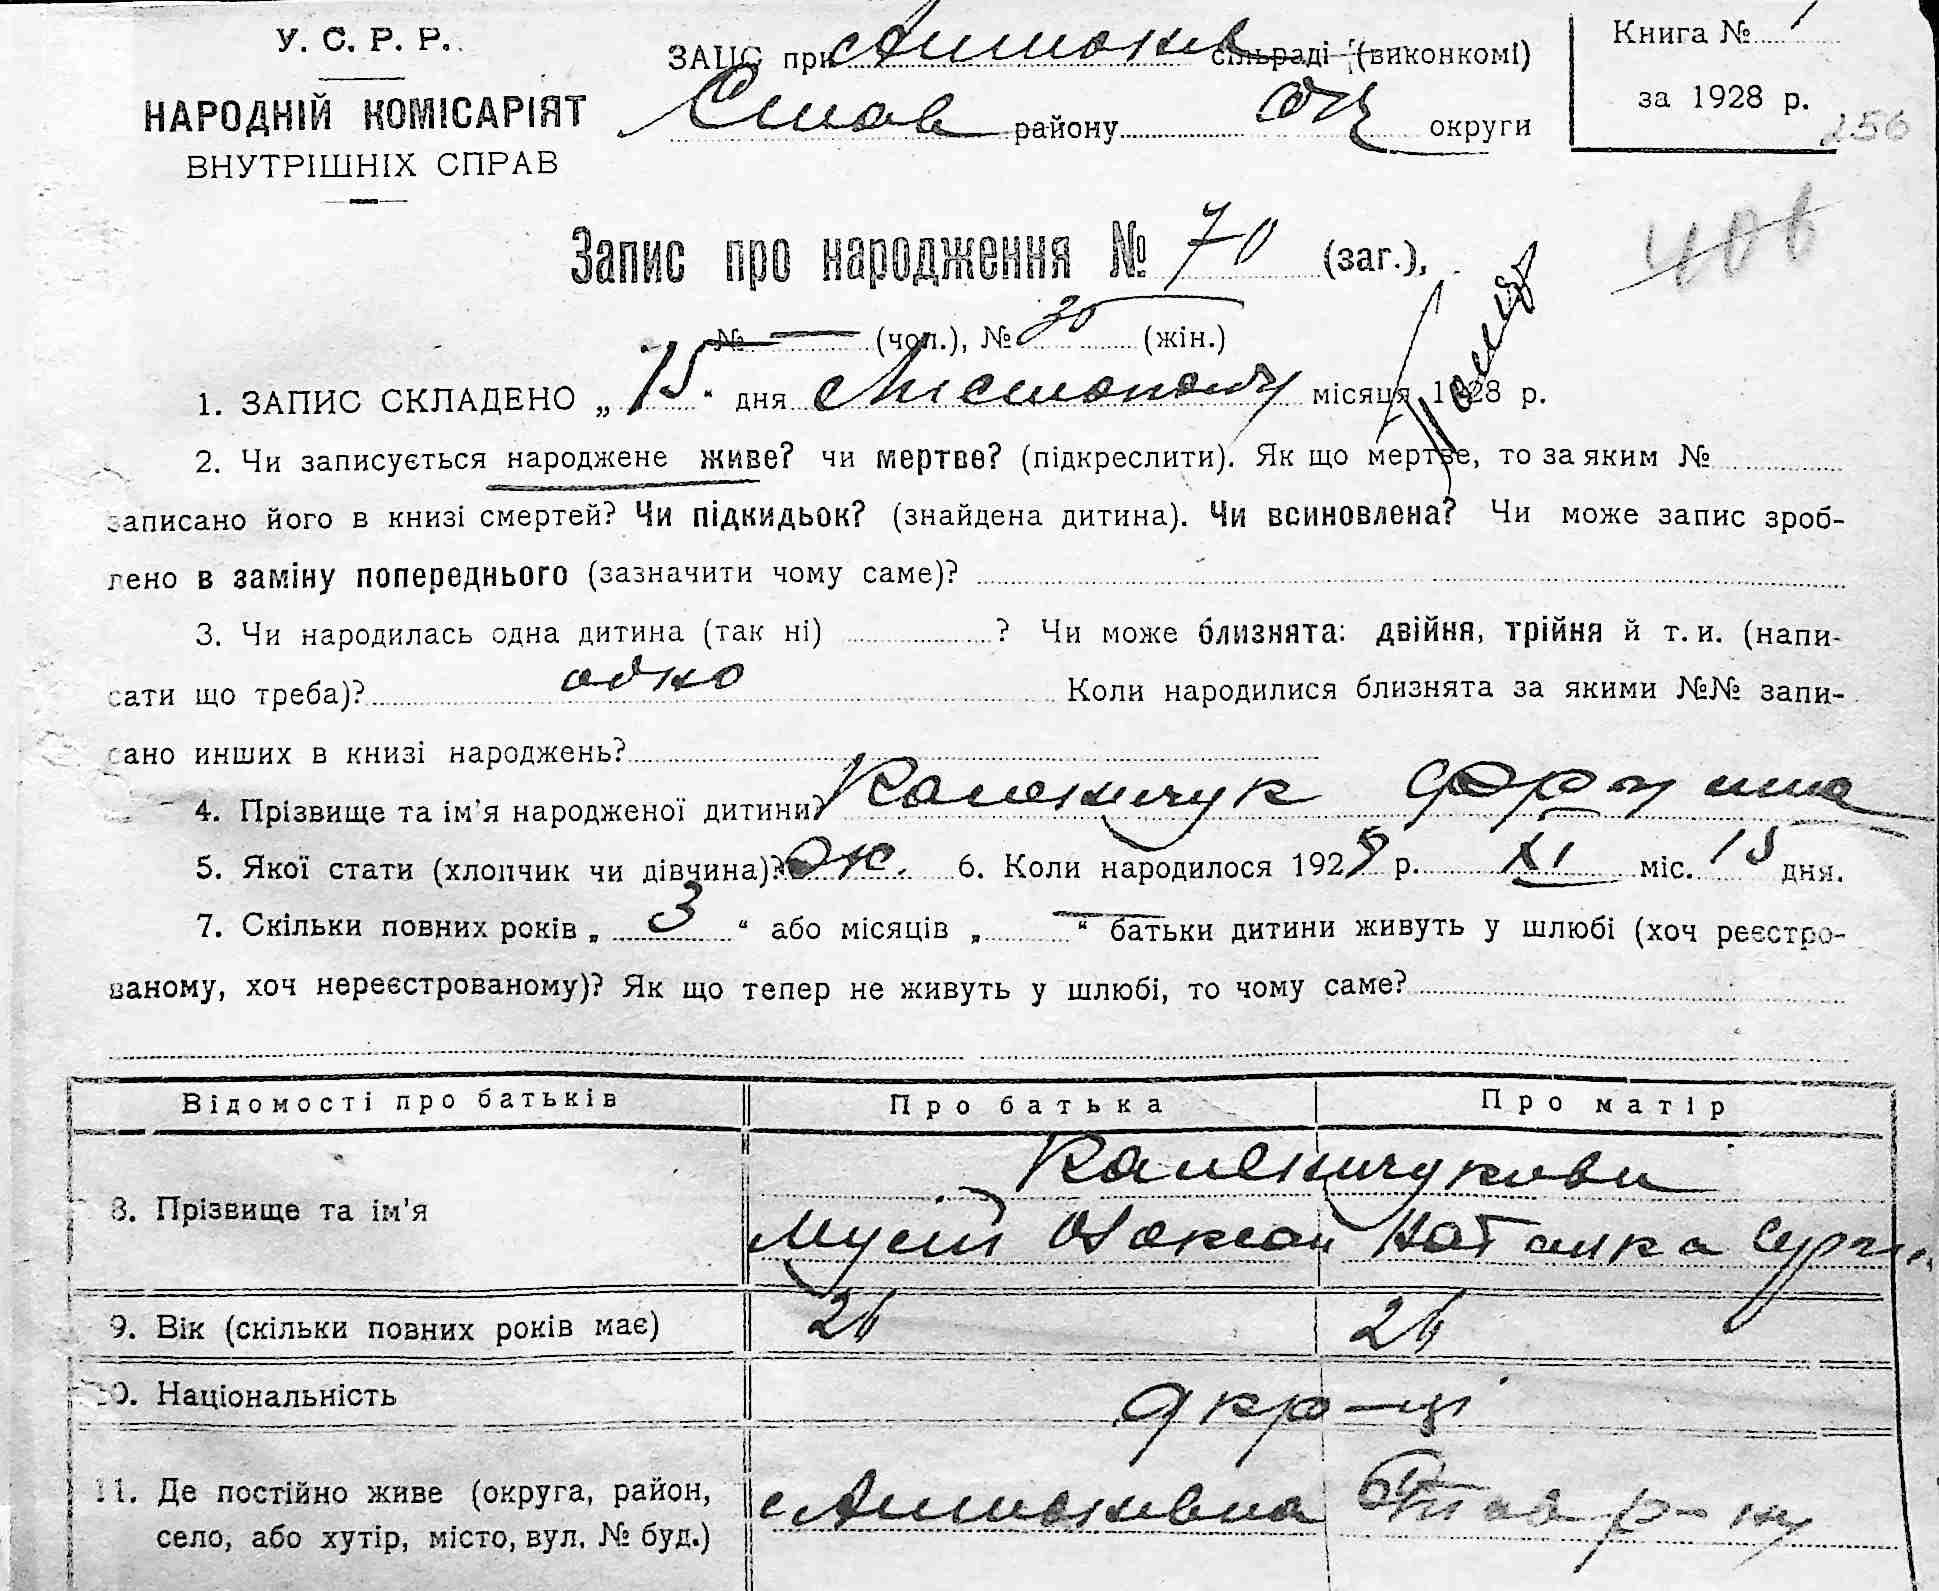 У. С. Р. Р.
НАРОДНІЙ КОМІСАРІЯТ
ВНУТРІШНІХ СПРАВ
ЗАЦС при сільраді (виконкомі)
Став району Од округи
Книга № 1
за 1928 р.
256
406
Запис про народження № 70 (заг.),
№ — (чол.), № 30 (жін.)
1. ЗАПИС СКЛАДЕНО „ 15 “ дня Листопаду місяця 1928 р.
2. Чи записується народжене живе? чи мертве? (підкреслити). Як що мертве, то за яким №
записано його в книзі смертей? Чи підкидьок? (знайдена дитина). Чи всиновлена? Чи може запис зроб-
лено в заміну попереднього (зазначити чому саме)?
3. Чи народилась одна дитина (так ні) ? Чи може близнята: двійня, трійня й т. и. (напи-
сати що треба)? одно Коли народилися близнята за якими №№ запи-
сано инших в книзі народжень?
4. Прізвище та ім’я народженої дитини? Каленичук
5. Якої стати (хлопчик чи дівчина)? ж. 6. Коли народилося 1928 р. XI міс. 15 дня.
7. Скільки повних років „ 3 “ або місяців „ — “ батьки дитини живуть у шлюбі (хоч реєстро-
ваному, хоч нереєстрованому)? Як що тепер не живуть у шлюбі, то чому саме?
Відомості про батьків Про батька Про матір
8. Прізвище та ім’я Каленичукови
Мусій Наталка
9. Вік (скільки повних років має) 26 26
10. Національність укр-ці
11. Де постійно живе (округа, район, Став р-ну
село, або хутір, місто, вул. № буд.)